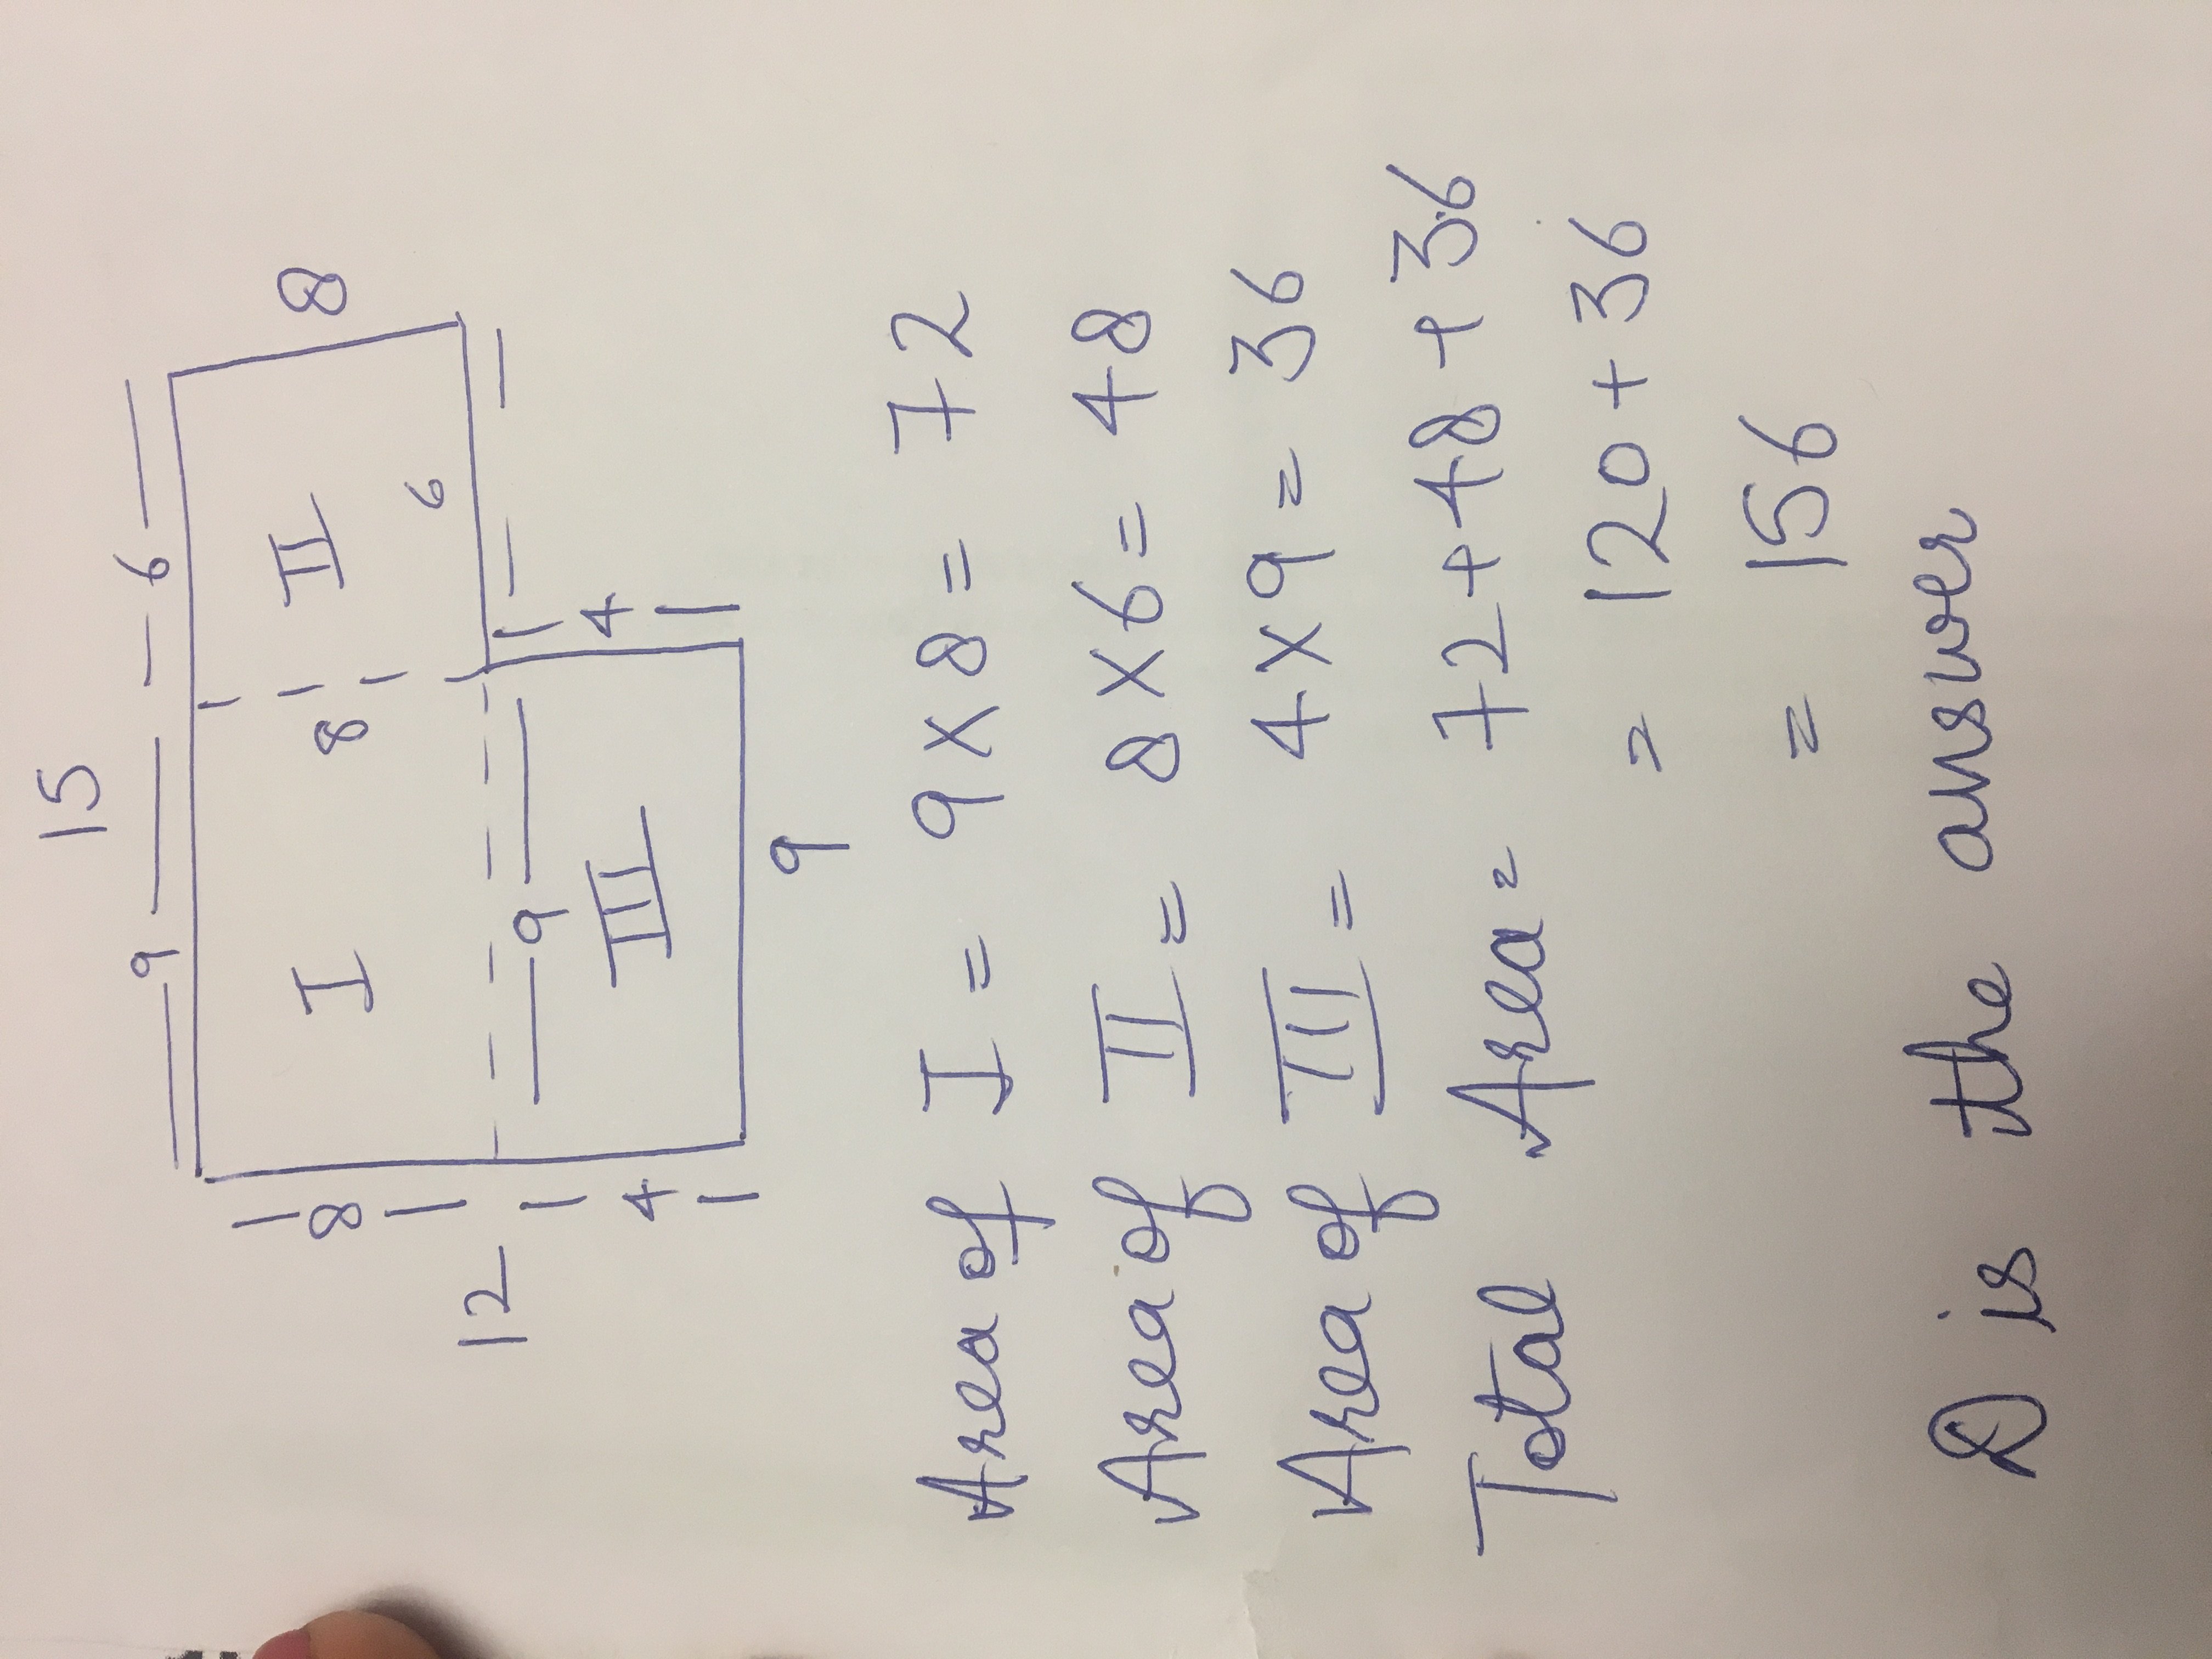 15
9 6
8 I 8 II 8
6
12
9 4
4 III
9
Area of I = 9 x 8 = 72
Area of II = 8 x 6 = 48
Area of III = 4 x 9 = 36
Total Area = 72 + 48 + 36
= 120 + 36
= 156
D is the answer